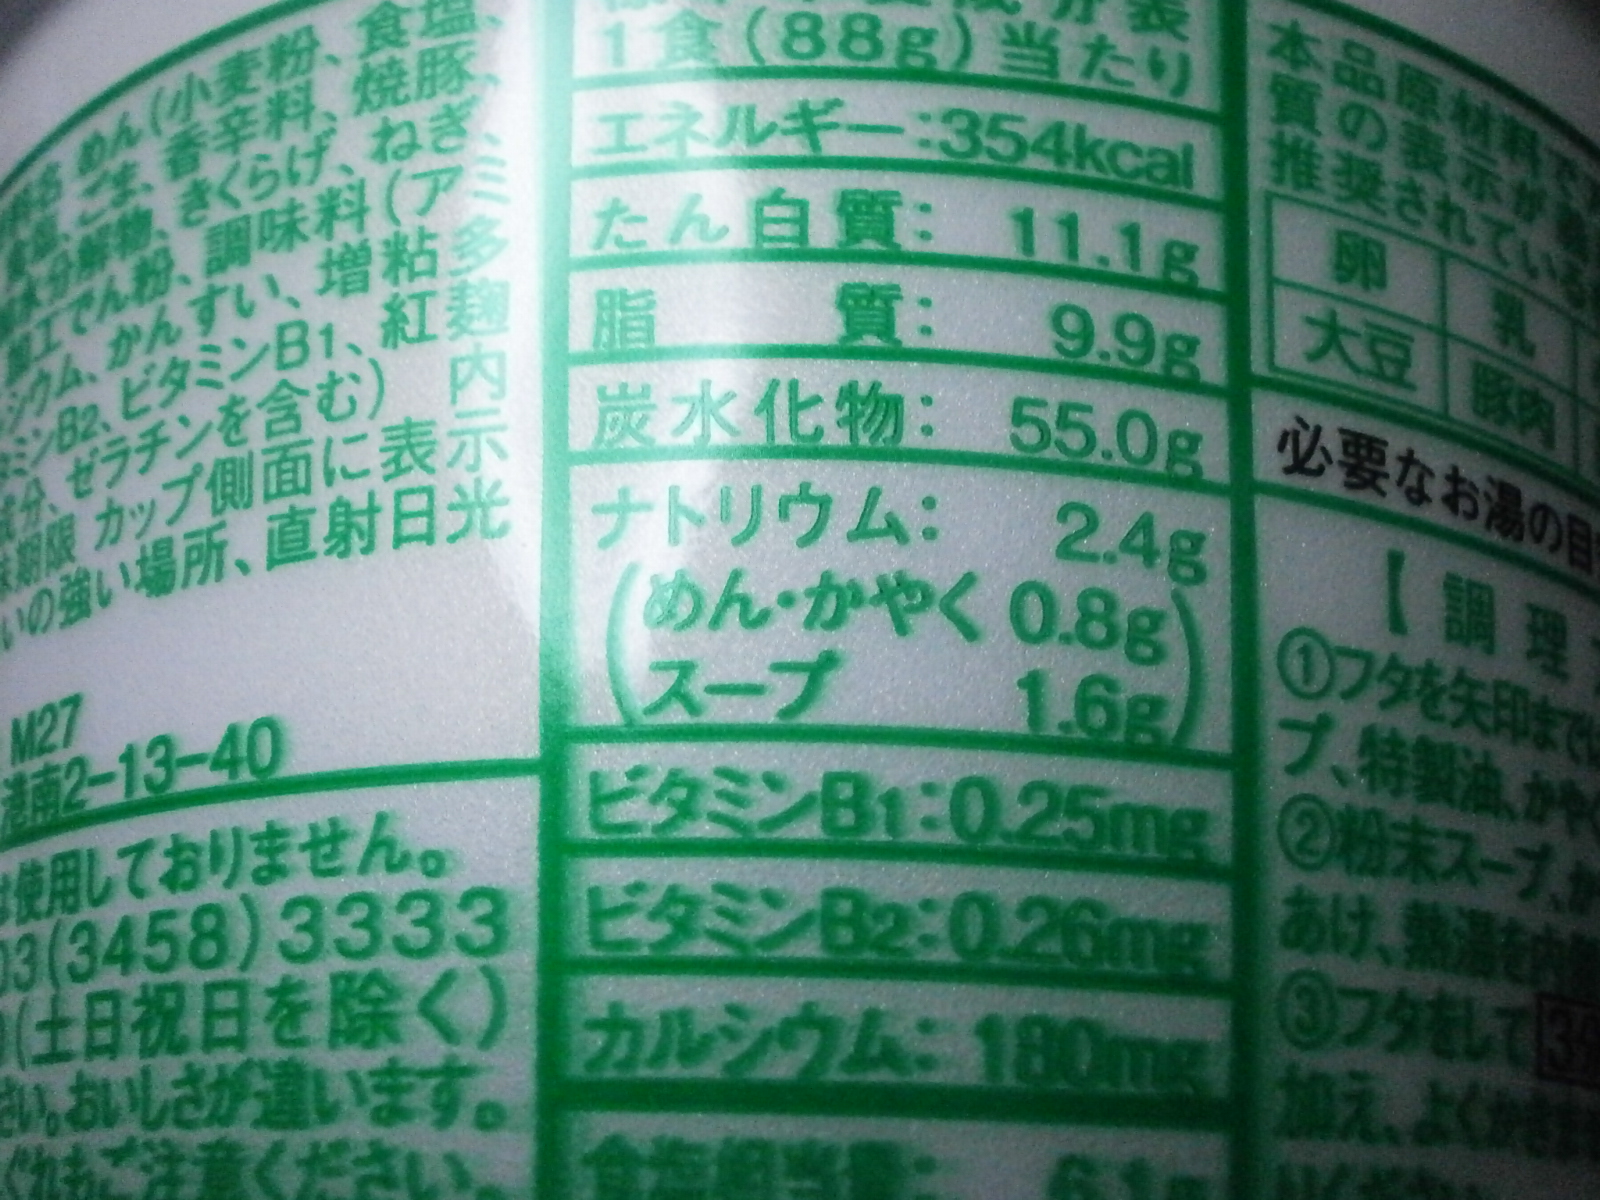 めん(小麦粉、食塩、
ごま、香辛料、焼豚、
水分解物、きくらげ、ねぎ、ミ
加工でん粉、調味料(ア
シウム、かんすい、増粘多
ミンB2、ビタミンB1、紅麹
成分、ゼラチンを含む) 内
期限 カップ側面に表示
いの強い場所、直射日光
M27
港南2-13-40
は使用しておりません。
03(3458)3333
(土日祝日を除く)
さい。おいしさが違います。
ご注意ください。
1食(88g)当たり
エネルギー:354kcal
たん白質: 11.1g
脂質: 9.9g
炭水化物: 55.0g
ナトリウム: 2.4g
(めん・かやく 0.8g)
(スープ 1.6g)
ビタミンB1:0.25mg
ビタミンB2:0.26mg
カルシウム: 180mg
食塩相当量: 6.1g
本品原材料で
質の表示が
推奨されている
卵 乳
大豆 豚肉
必要なお湯の目
【調理
①フタを矢印まで
プ、特製油、かやく
②粉末スープ、か
あけ、熱湯を内側
③フタをして
加え、よくかきま